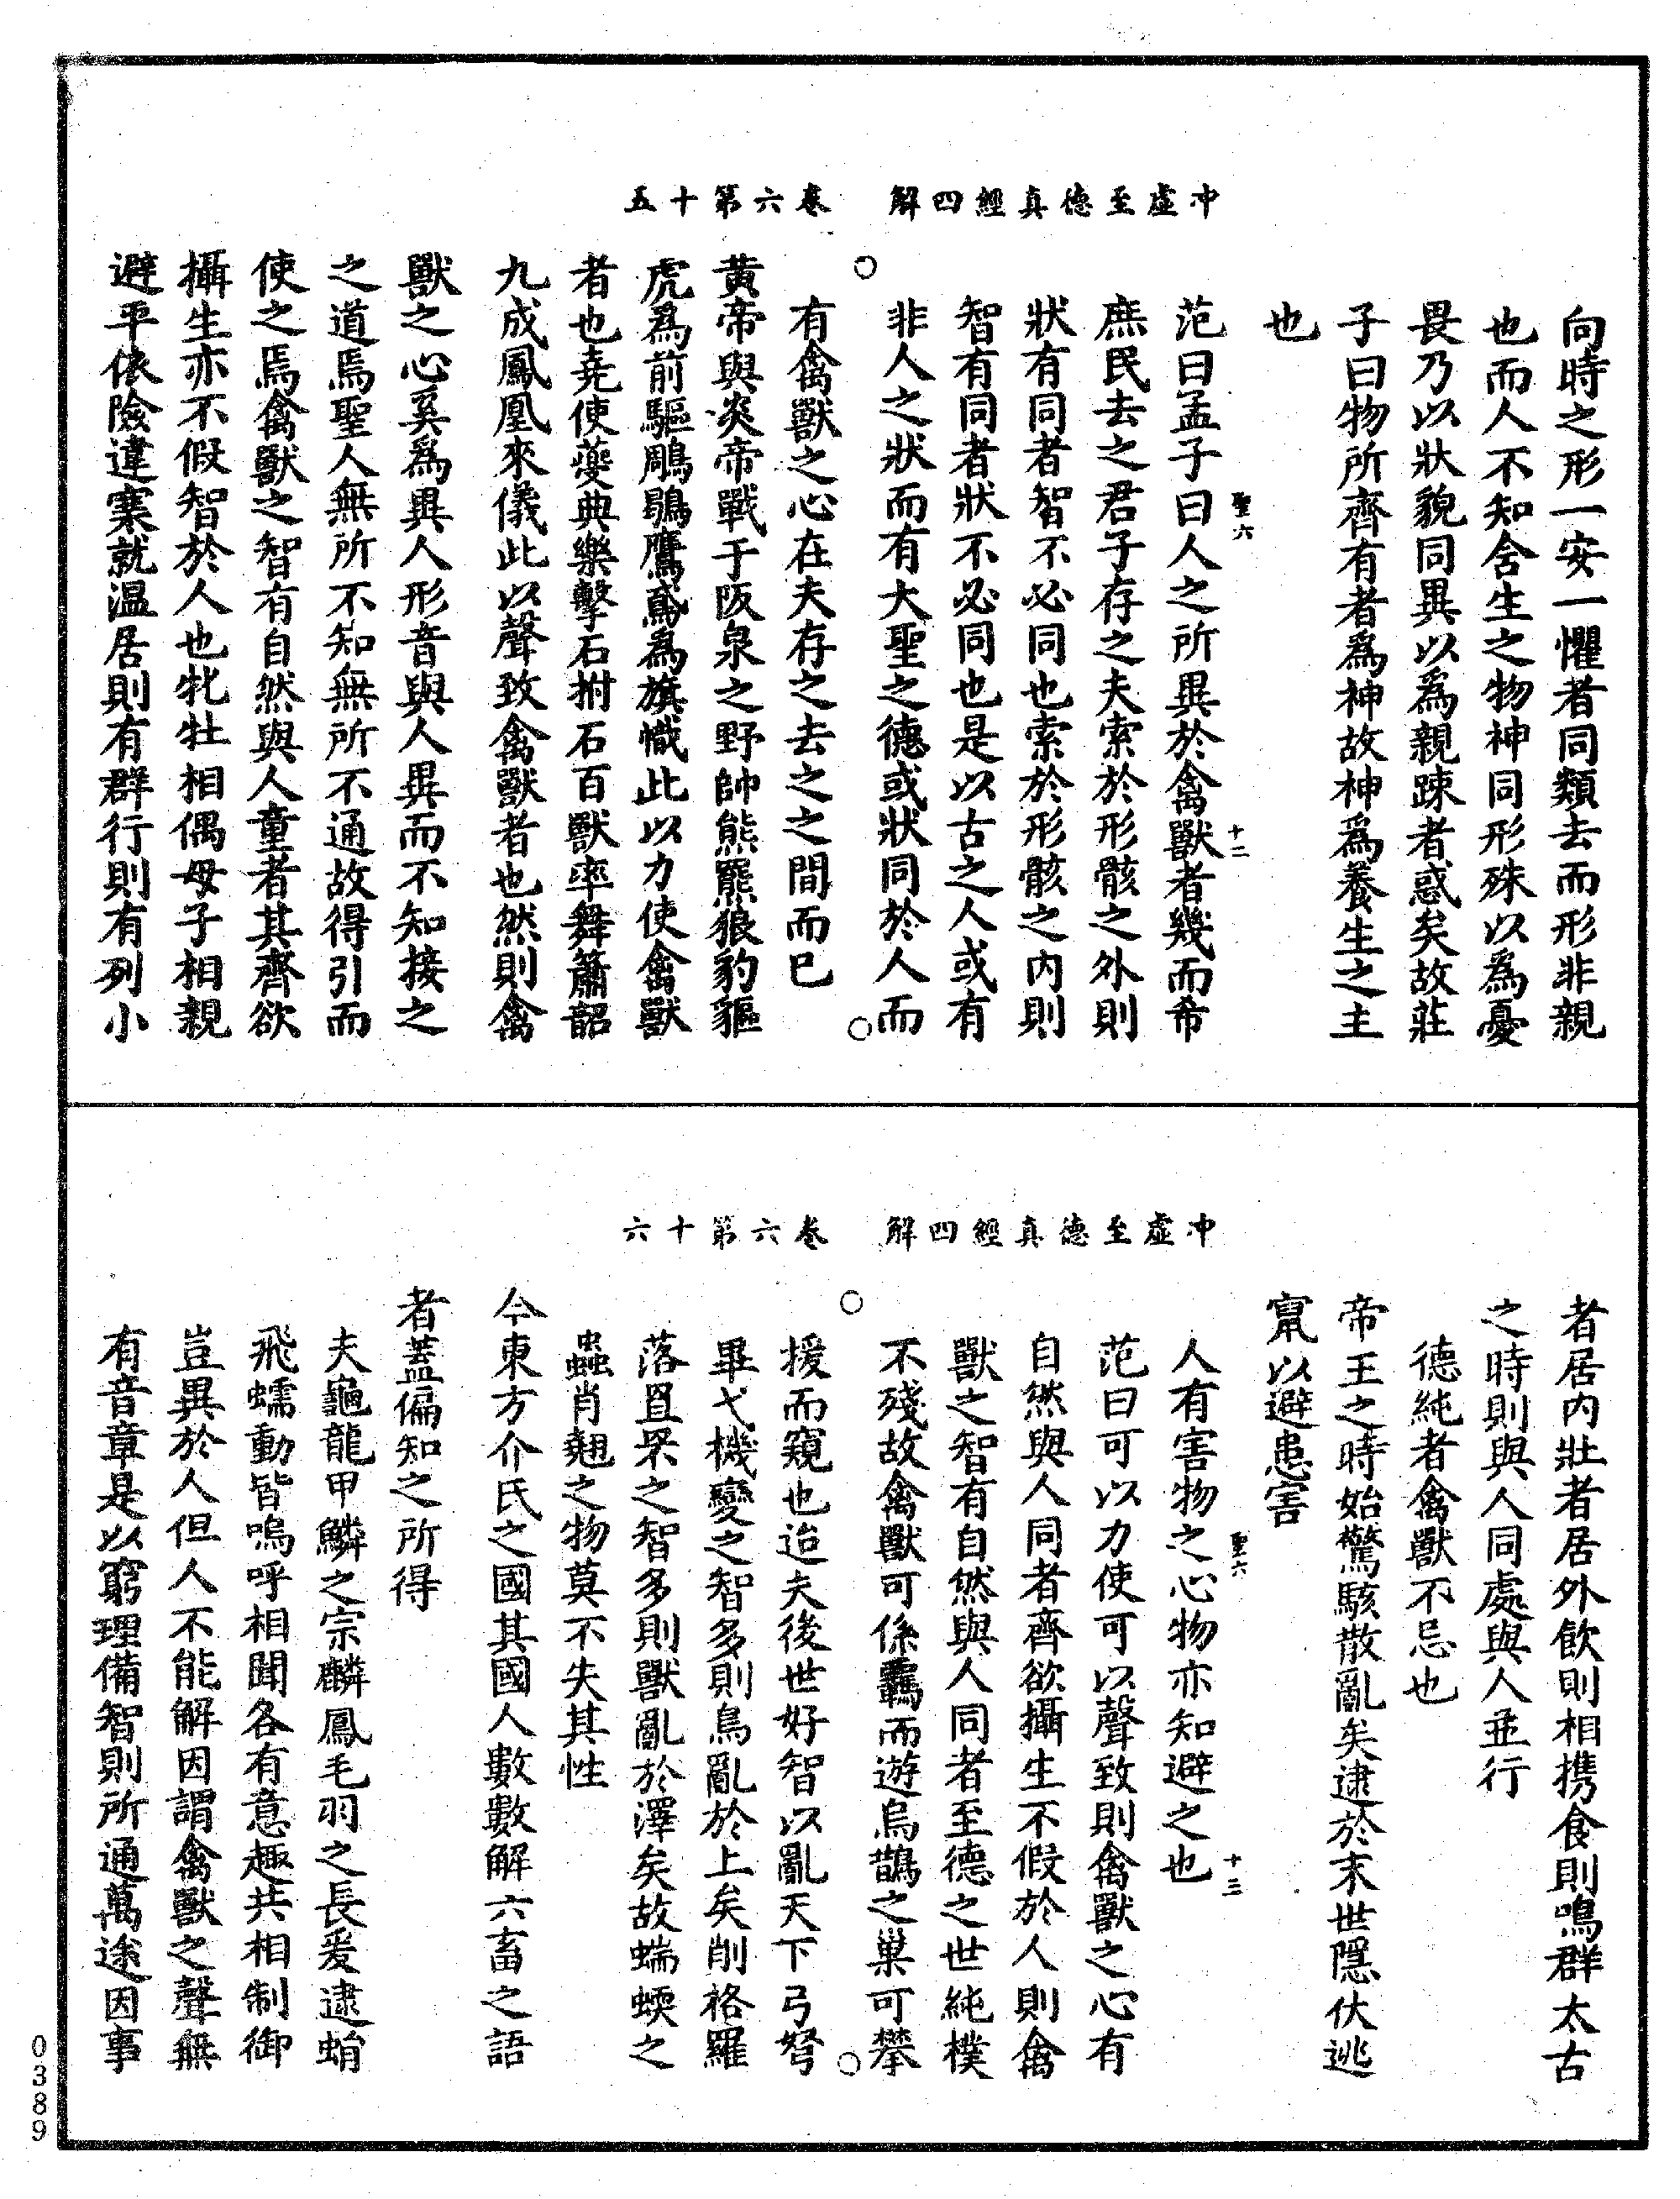 冲虛至德真經四解　卷六第十五
向時之形一安一懼者同類去而形非親
也而人不知含生之物神同形殊以為憂
畏乃以狀貌同異以為親踈者惑矣故莊
子曰物所齊有者為神故神為養生之主
也
范曰孟子曰人之所異於禽獸者幾而希
聖六　十二
庶民去之君子存之夫索於形骸之外則
狀有同者智不必同也索於形骸之內則
智有同者狀不必同也是以古之人或有
非人之狀而有大聖之德或狀同於人而
有禽獸之心在夫存之去之之間而已
黃帝與炎帝戰于阪泉之野帥熊羆狼豹貙
虎為前驅鵰鶡鷹鳶為旗幟此以力使禽獸
者也堯使夔典樂擊石拊石百獸率舞簫韶
九成鳳凰來儀此以聲致禽獸者也然則禽
獸之心奚為異人形音與人異而不知接之
之道焉聖人無所不知無所不通故得引而
使之焉禽獸之智有自然與人童者其齊欲
攝生亦不假智於人也牝牡相偶母子相親
避平依險違寒就温居則有群行則有列小
冲虛至德真經四解　卷六第十六
者居內壯者居外飲則相携食則鳴群太古
之時則與人同處與人並行
德純者禽獸不忌也
帝王之時始驚駭散亂矣逮於末世隱伏逃
竄以避患害
人有害物之心物亦知避之也
聖六　十三
范曰可以力使可以聲致則禽獸之心有
自然與人同者齊欲攝生不假於人則禽
獸之智有自然與人同者至德之世純樸
不殘故禽獸可係羈而遊鳥鵲之巢可攀
援而窺也迨夫後世好智以亂天下弓弩
畢弋機變之智多則鳥亂於上矣削格羅
落罝罘之智多則獸亂於澤矣故蝡蝡之
蟲肖翹之物莫不失其性
今東方介氏之國其國人數數解六畜之語
者蓋偏知之所得
夫龜龍甲鱗之宗麟鳳毛羽之長爰逮蜎
飛蠕動皆嗚呼相聞各有意趣共相制御
豈異於人但人不能解因謂禽獸之聲無
有音章是以窮理備智則所通萬途因事
0389